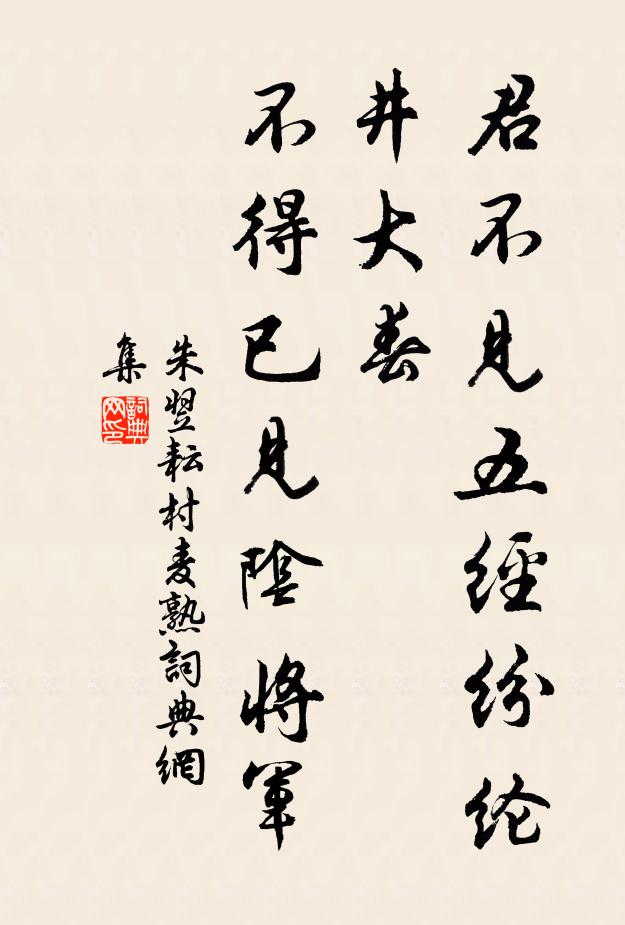 君不見五經紛纶
井大春
不得已見陰將軍
朱翌耘村麦熟詞典網
集
詞典
网印